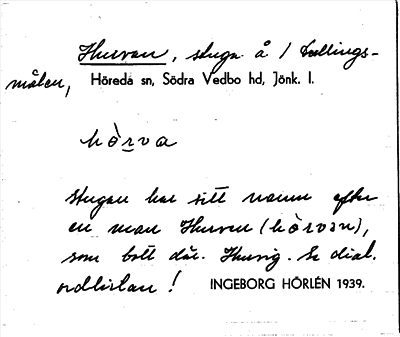 Hurvan, stuga å 1 Kullings-
målen, Höreda sn, Södra Vedbo hd, Jönk. l.
hòrva
stugan har sitt namn efter
en man Hurven (hòrvən),
som bott där. Hurvig. Se dial.
ordlistan! INGEBORG HÖRLÉN 1939.